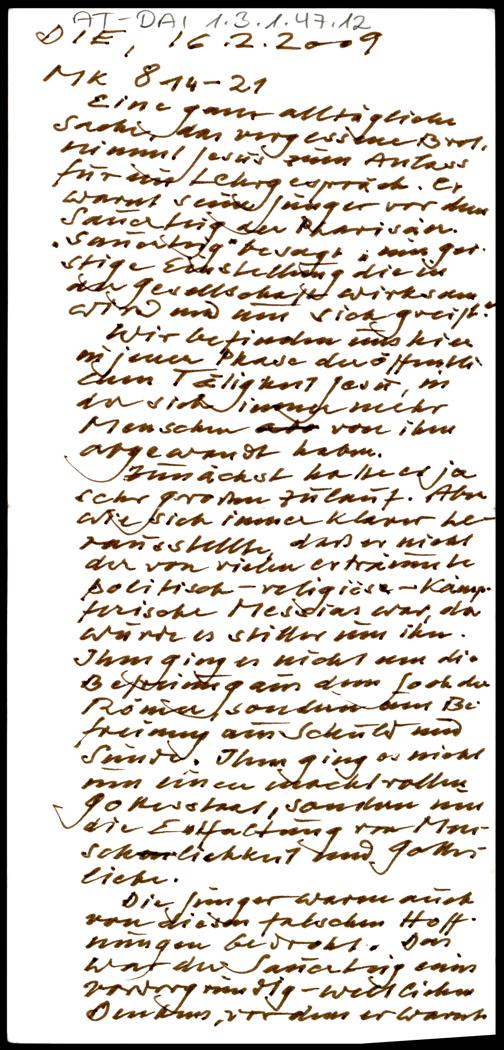 AT-DAI 1.3.1.47.12
DIE, 16.2.2009
MK 8 14-21
Eine ganz alltägliche
Sache, das vergessene Brot,
nimmt Jesus zum Anlass
für ein Lehrgespräch. Er
warnt seine Jünger vor dem
Sauerteig der Pharisäer.
"Sauerteig" besagt: eine gei-
stige Einstellung die in
der Gesellschaft wirksam
wird und um sich greift.
Wir befinden uns hier
in jener Phase der öffentli
chen Tätigkeit Jesu, in
der sich immer mehr
Menschen von ihm
abgewandt haben.
Zunächst hatte er ja
sehr großen Zulauf. Aber
wie sich immer klarer he-
rausstellte, daß er nicht
der von vielen erträumte
politisch-religiöse-Kämp-
ferische Messias war, da
wurde es stiller um ihn.
Ihm ging es nicht um die
Befreiung aus dem Joch der
Römer, sondern um Be
freiung aus Schuld und
Sünde. Ihm ging es nicht
um einen machtvollen
Gottesstaat, sondern um
die Entfaltung von Men-
schlichkeit und Gottes-
liebe.
Die Jünger waren auch
von diesen falschen Hoff-
nungen bedroht. Das
war der Sauerteig eines
vordergründig-weltlichen
Denkens, vor dem er warnt